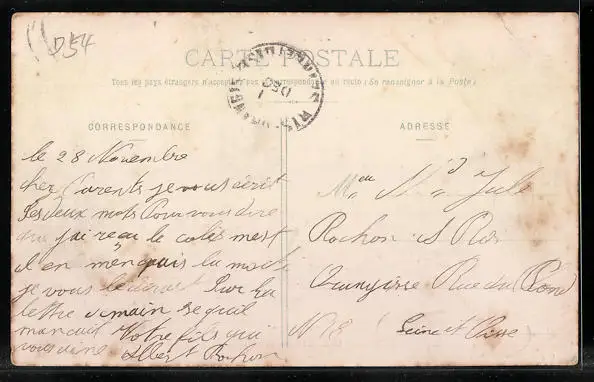 D54
CARTE POSTALE
Tous les pays étrangers n'acceptent pas de correspondance au recto (Se renseigner à la Poste)
CORRESPONDANCE
ADRESSE
le 28 Novembre
cher Parents je vous écrit
ses deux mots Pour vous dire
que j'ai reçu le colis mest
il en menquais la motié
je vous Sur la
lettre demain se quil
manquait Votre fils qui
vous aime Albert Rochon
Jule
Rochon
Rue du
N 18 Seine et Oise